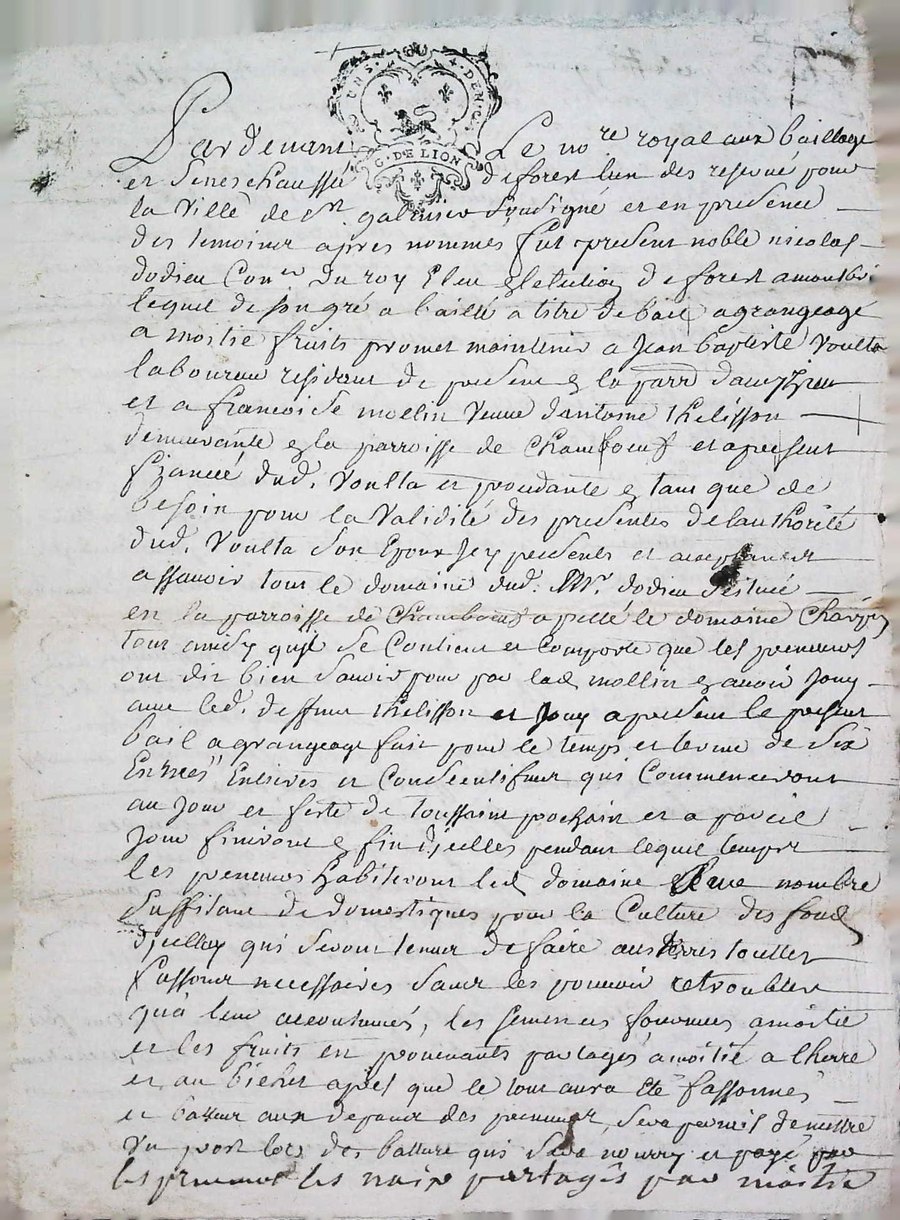 G. DE LION
Pardevant Le no.re royal aux bailliage
et Seneschaussée de forest lun des reservé pour
la Ville de St galmier Soussigné et en presence
des temoins apres nommés fut present noble nicolas
dodieu Con.er du roy Eleu en lelection de forest a montbri
lequel de son gré a baillé a titre de bail a grangeage
a moitié fruits promet maintenir a Jean baptiste Voulta
laboureur residant de present en la parr.
et a francoise mollin Veuve dantoine thelisson
demeurante en la parroisse de Chambœuf et apresent
fiancée dud. Voulta et procedante en tant que de
besoin pour la Validité des presentes de lauthorité
dud. Voulta son Epoux Icy presents et acceptants
assavoir tout le domaine dud. Mr. dodieu Scitué
en la parroisse de Chambœuf appellé le domaine
tout ainsy quil se Contient et Comporte que les preneurs
ont dit bien Savoir pour par lad. mollin en avoir Jouy
avec led. deffunt thelisson et Jouy apresent le present
bail a grangeage fait pour le temps et terme de Six
Années Entieres et Consecutifves qui Commenceront
au Jour et feste de toussaint prochain et a pareil
Jour finiront en fin dicelles pendant lequel temps
les preneurs habiteront led. domaine avec nombre
Suffisant de domestiques pour la Culture des fonds
dicelluy qui seront tenus de faire aus terres touttes
fassons necessaires sans les pouvoir retroubler
qua leur accoutumés, les semences fournies a moitié
et les fruits en provenants partagés a moitié a lherre
et au bichet apres que le tout aura été fassonné
et battu aux depens des preneurs, sera permis de mettre
un lors des batture qui sera nourry et payé par
les preneurs les noix partagés par moitié